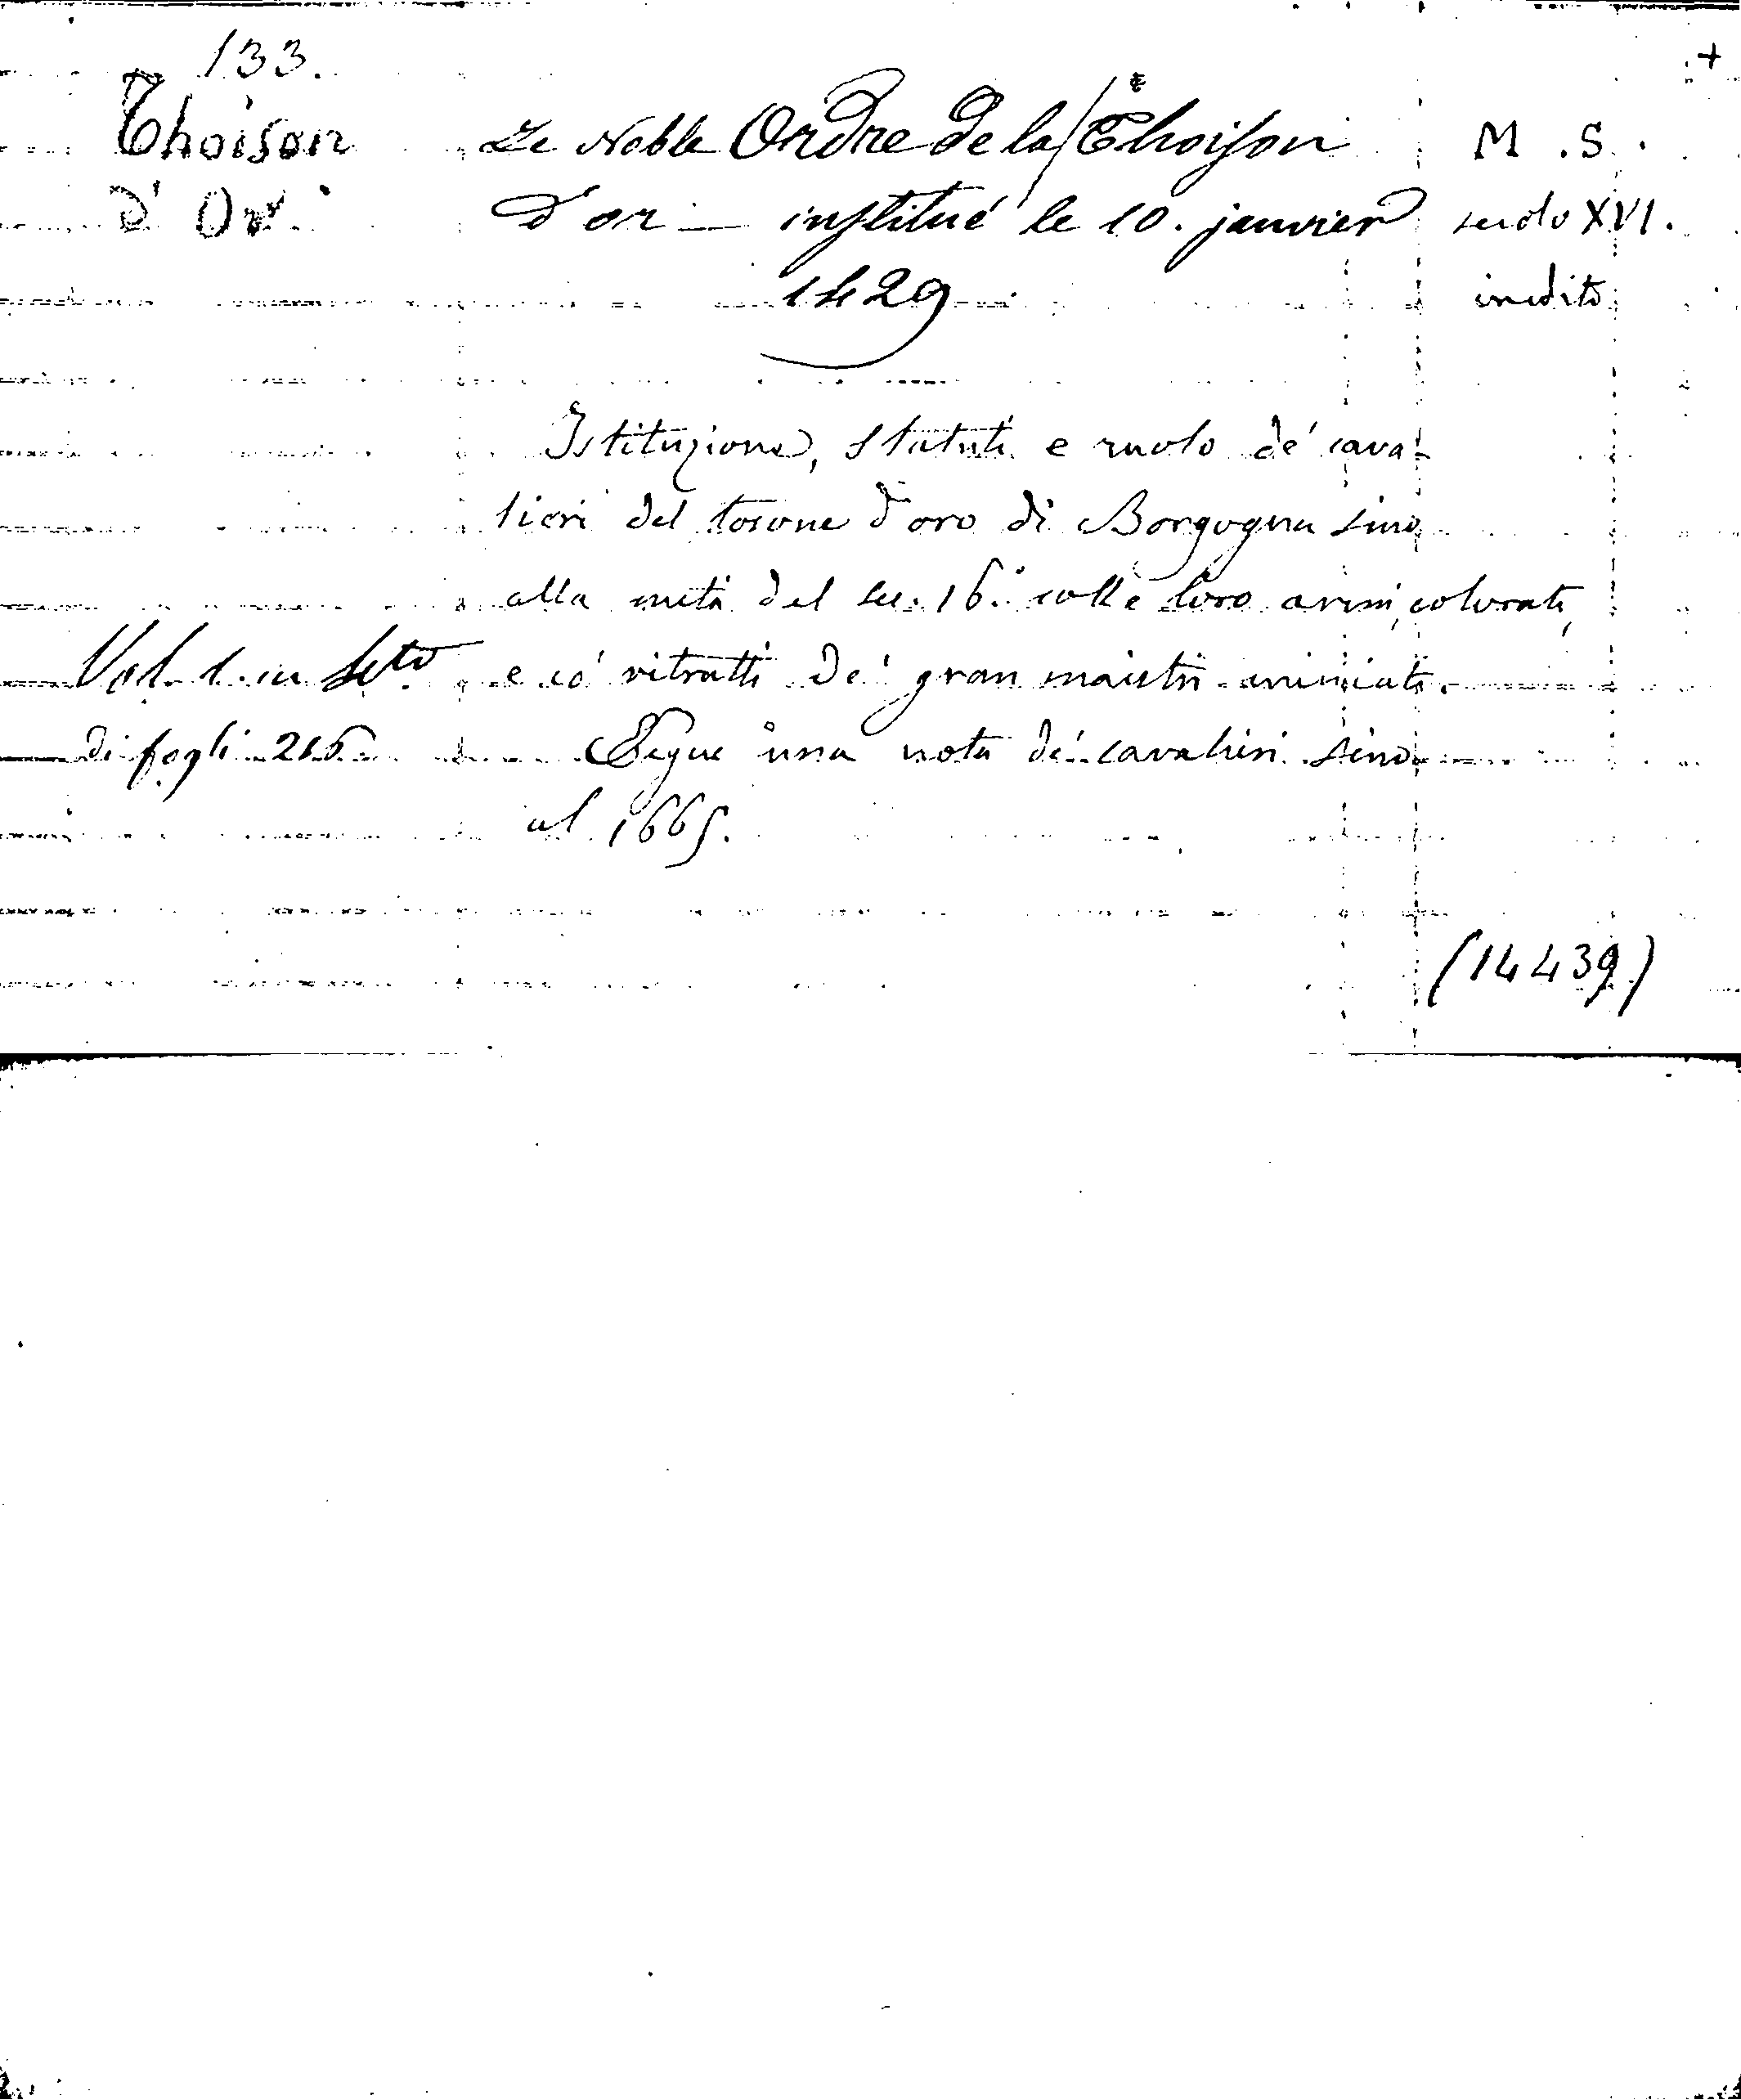 133.
+
Thoison
d'Or.
Le Noble Ordre de la Thoison
d'or — institué le 10. janvier
1429
M.S.
secolo XVI.
inedito
Istituzione, statuti e ruolo de' cava-
lieri del tosone d'oro di Borgogna sino
alla metà del sec. 16.° colle loro armi colorate,
e co' ritratti de' gran maestri miniati.
Segue una nota de' cavalieri sino
al 1665.
Vol. 1. in 4to
di fogli 216
(14439)